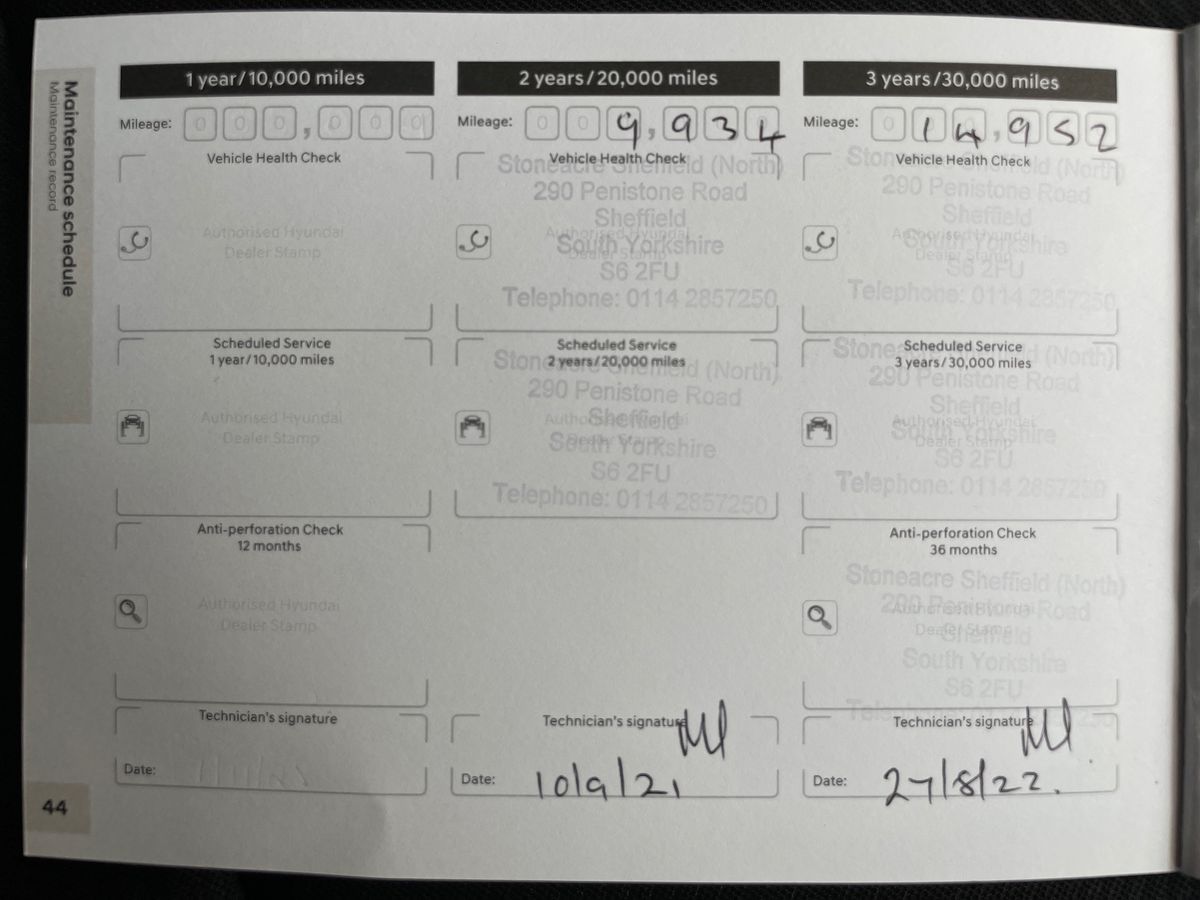 Maintenance schedule
Maintenance record
1 year/10,000 miles
Mileage: 000,000
Vehicle Health Check
Authorised Hyundai
Dealer Stamp
Scheduled Service
1 year/10,000 miles
Authorised Hyundai
Dealer Stamp
Anti-perforation Check
12 months
Authorised Hyundai
Dealer Stamp
Technician's signature
Date:
2 years/20,000 miles
Mileage: 009,934
Vehicle Health Check
Stoneacre Sheffield (North)
290 Penistone Road
Sheffield
Authorised Hyundai
South Yorkshire
Dealer Stamp
S6 2FU
Telephone: 0114 2857250
Scheduled Service
2 years/20,000 miles
Stoneacre Sheffield (North)
290 Penistone Road
Sheffield
Authorised Hyundai
South Yorkshire
Dealer Stamp
S6 2FU
Telephone: 0114 2857250
Technician's signature
Date: 10/9/21
3 years/30,000 miles
Mileage: 014,952
Vehicle Health Check
Stoneacre Sheffield (North)
290 Penistone Road
Sheffield
Authorised Hyundai
South Yorkshire
Dealer Stamp
S6 2FU
Telephone: 0114 2857250
Scheduled Service
3 years/30,000 miles
Stoneacre Sheffield (North)
290 Penistone Road
Sheffield
Authorised Hyundai
South Yorkshire
Dealer Stamp
S6 2FU
Telephone: 0114 2857250
Anti-perforation Check
36 months
Stoneacre Sheffield (North)
290 Penistone Road
Authorised Hyundai
Sheffield
Dealer Stamp
South Yorkshire
S6 2FU
Technician's signature
Date: 27/8/22.
44